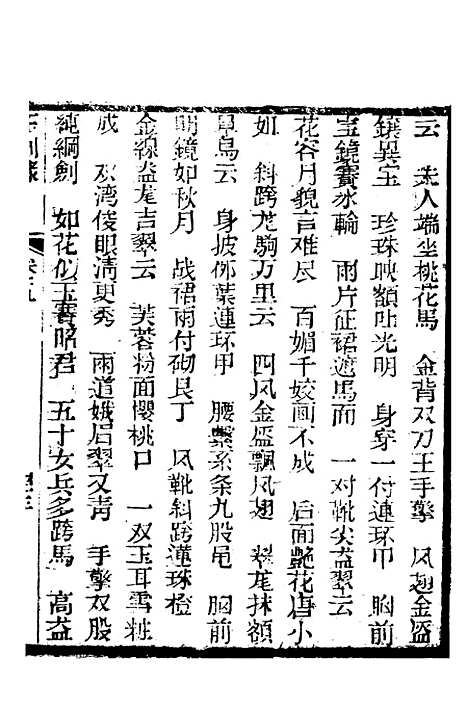 云　夫人端坐桃花馬　金背双刀王手擎　凤翅金盔
鑲異宝　珍珠映額吐光明　身穿一付連环甲　胸前
宝鏡賽冰輪　兩片征裙遮馬面　一对靴尖盖翠云
花容月貌言难尽　百媚千姣画不成　后面艷花唐小
如　斜跨龙駒万里云　四凤金盔飄凤翅　翠尾抹額
單鳥云　身披柳葉連环甲　腰繫糸条九股黾　胸前
明鏡如秋月　战裙兩付砌艮丁　凤靴斜跨蓮珠橙
金線盗尾吉翠云　芙蓉粉面櫻桃口　一双玉耳雪粧
成　双湾俊眼清更秀　兩道娥后翠又青　手擎双股
純綱劍　如花似玉賽昭君　五十女兵多跨馬　高盗
卷五